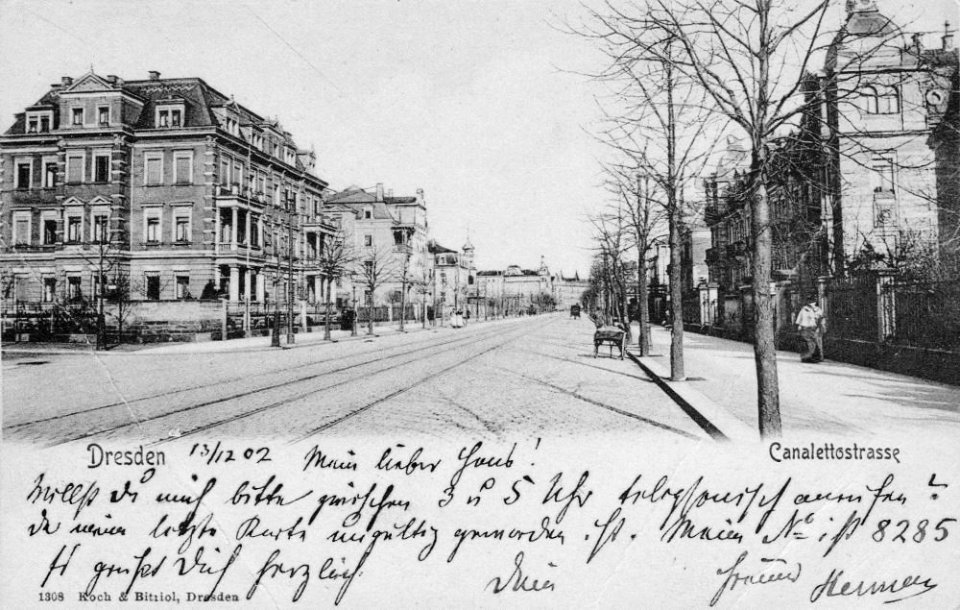 Dresden 13/12 02 Mein lieber Hans! Canalettostrasse
Willst Du mich bitte zwischen 3 u 5 Uhr telephonisch anrufen?
da meine letzte Karte ungültig geworden ist. Meine No ist 8285
Es grüßt Dich herzlich
Dein Freund Herman
1308 Koch & Bitriol, Dresden